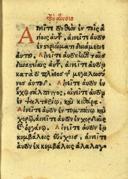 Αἰνεῖτε τὸν Θεὸν ἐν τοῖς ἁγί
οις αὐτοῦ, αἰνεῖτε αὐτὸν
ἐν στερεώματι δυνάμεως
αὐτοῦ. Αἰνεῖτε αὐτὸν ἐπὶ ταῖς
δυναστείαις αὐτοῦ, αἰνεῖτε αὐτὸν
κατὰ τὸ πλῆθος τῆς μεγαλωσύ
νης αὐτοῦ. Αἰνεῖτε αὐτὸν ἐν
ἤχῳ σάλπιγγος, αἰνεῖτε αὐτὸν
ἐν ψαλτηρίῳ, καὶ κιθάρᾳ.
Αἰνεῖτε αὐτὸν ἐν τυμπάνῳ, καὶ
χορῷ, αἰνεῖτε αὐτὸν ἐν χορδαῖς
καὶ ὀργάνῳ. Αἰνεῖτε αὐτὸν ἐν
κυμβάλοις εὐήχοις, αἰνεῖτε
αὐτὸν ἐν κυμβάλοις ἀλαλαγ